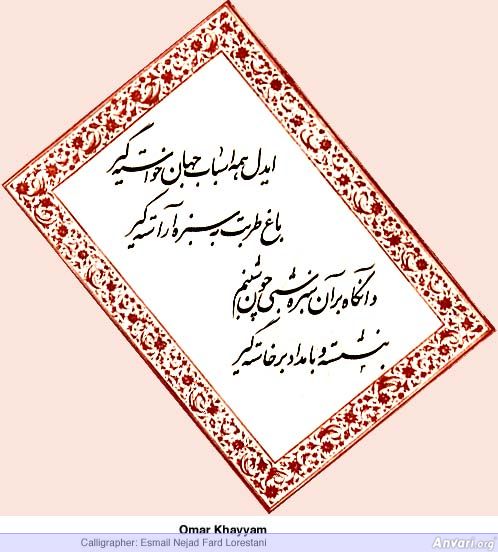 ایدل همه اسباب جهان خواسته گیر
باغ طربت به سبزه آراسته گیر
وانگاه بر آن سبزه شبی چون شبنم
بنشسته و بامداد برخاسته گیر
Omar Khayyam
Calligrapher: Esmail Nejad Fard Lorestani
Anvari.org